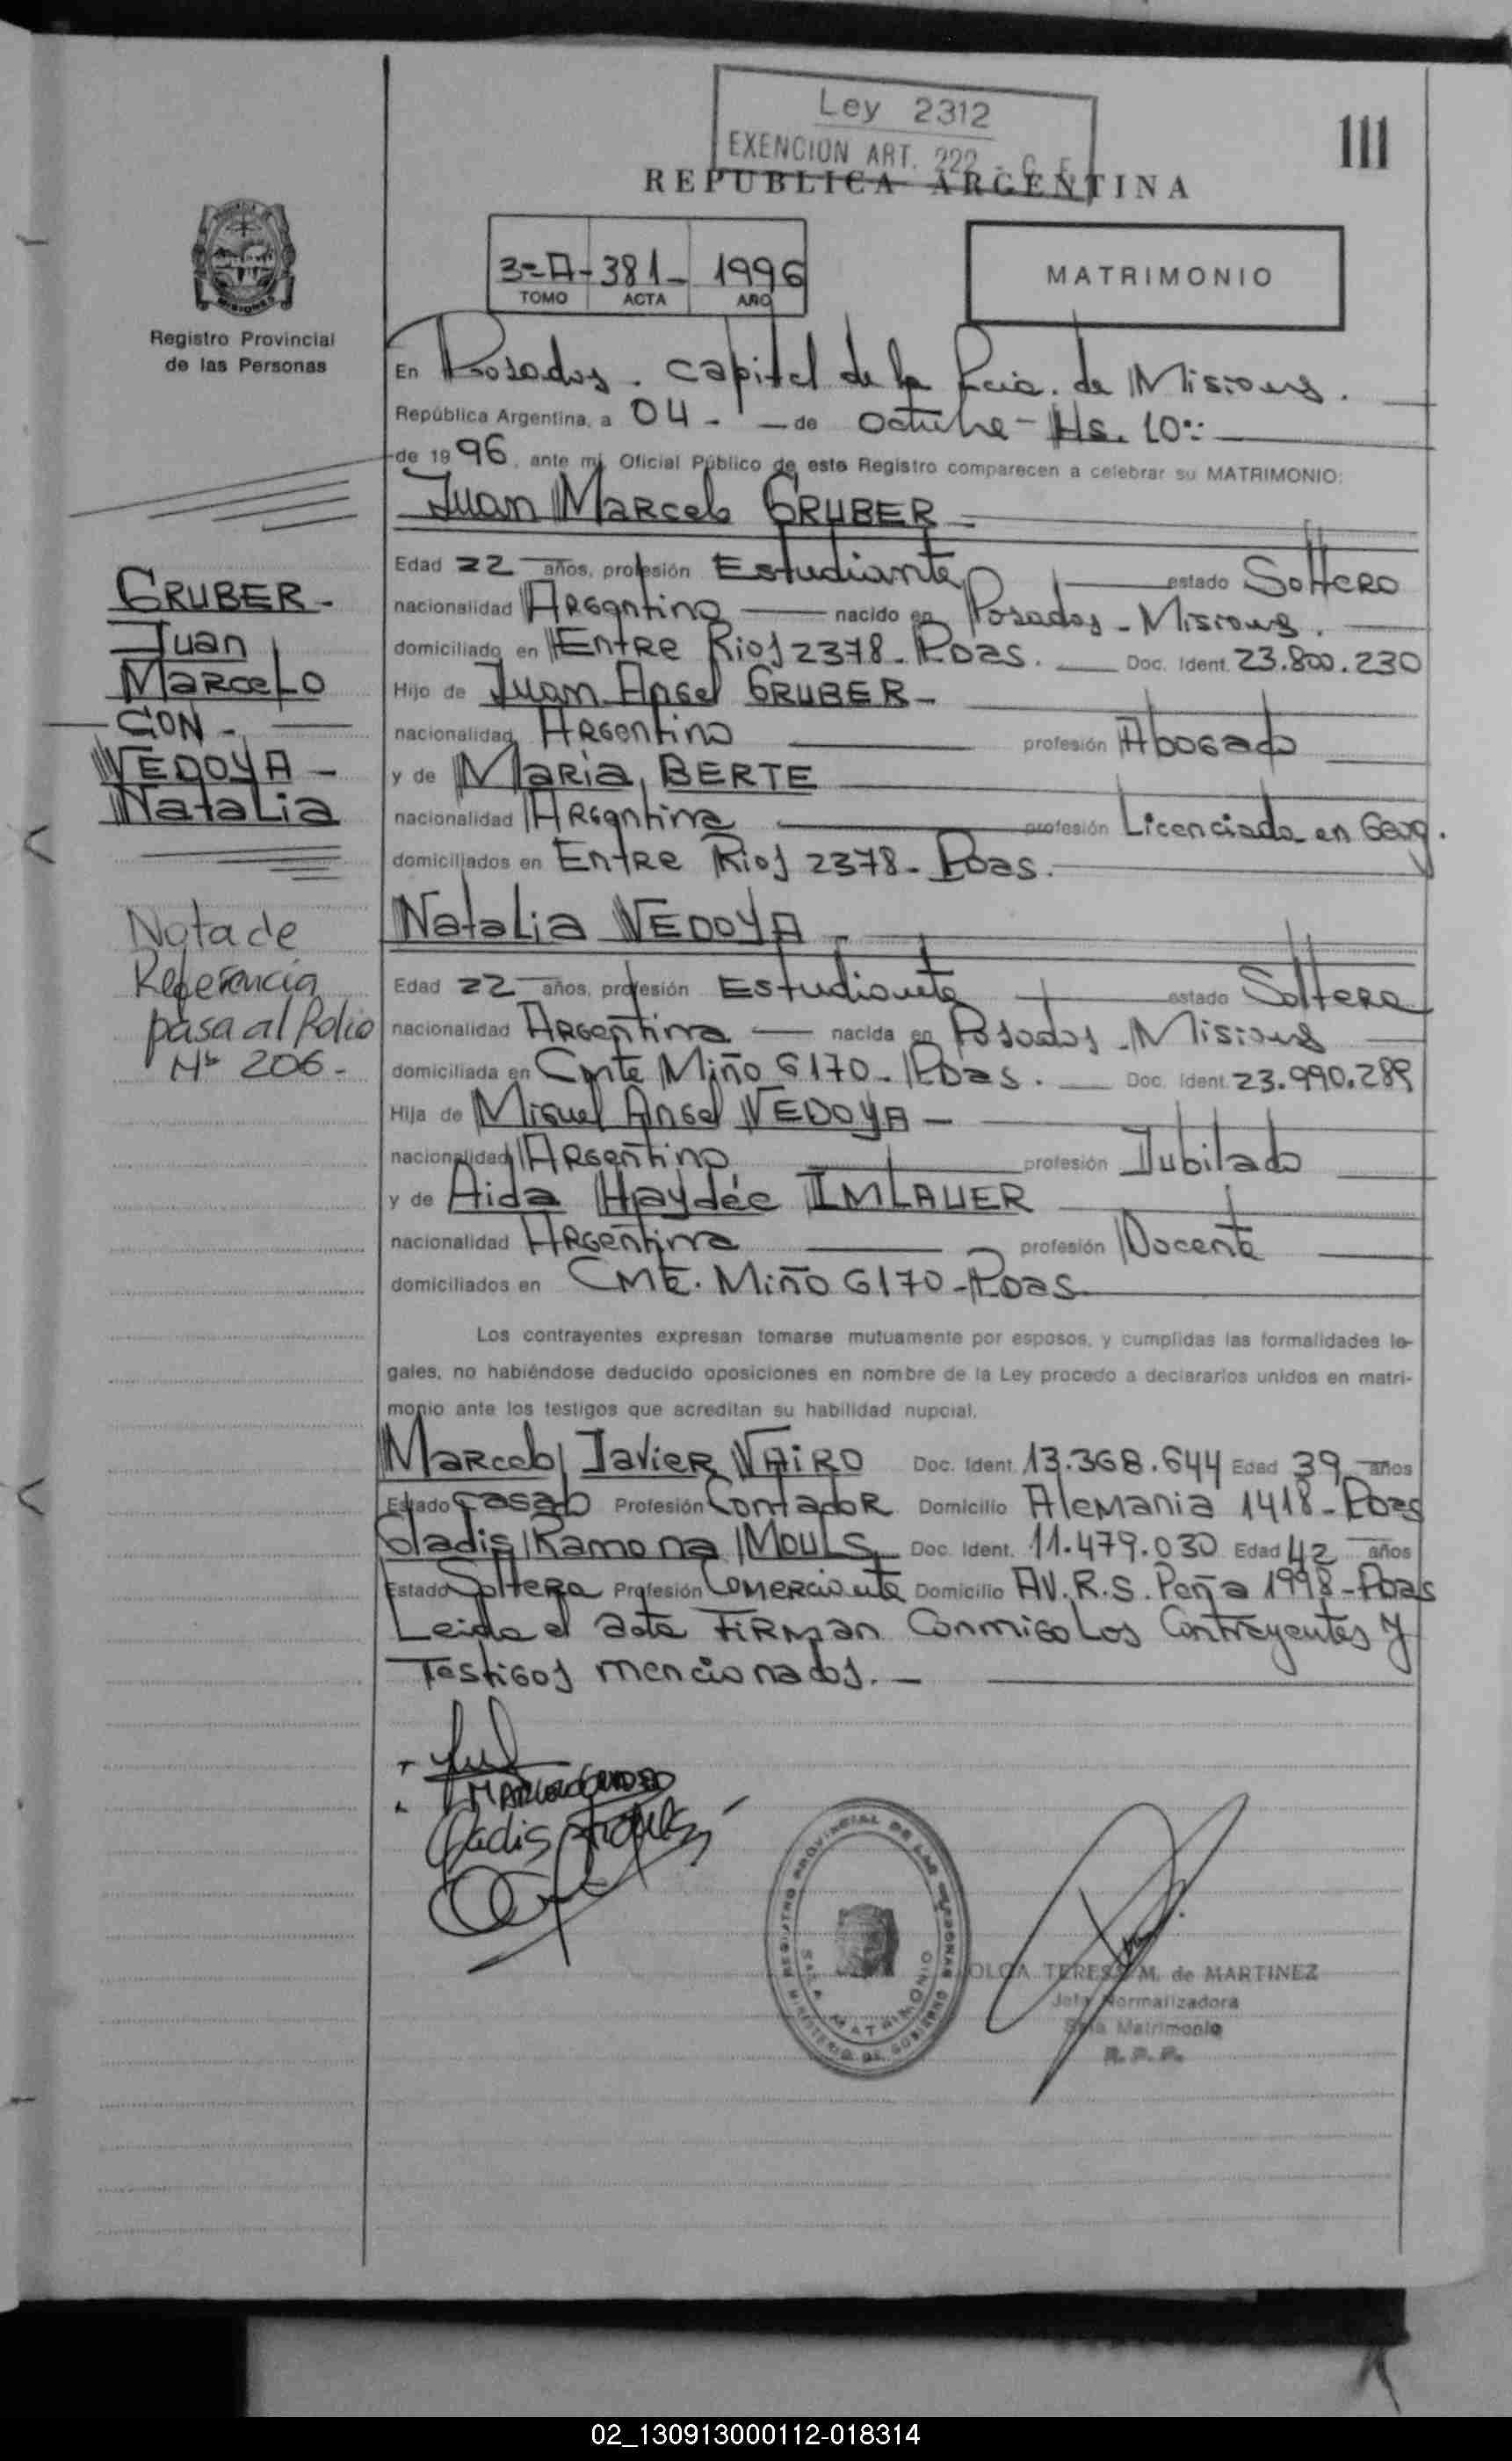 Ley 2312
EXENCION ART. 222 - C. F.
111
REPUBLICA ARGENTINA
3=A - 381 - 1996
TOMO ACTA AÑO
MATRIMONIO
Registro Provincial
de las Personas
En Posadas. Capital de la Pcia. de Misiones.
República Argentina, a 04 - de Octubre - Hs. 10::
de 1996, ante mí, Oficial Público de este Registro comparecen a celebrar su MATRIMONIO:
Juan Marcelo GRUBER =
Edad 22 años, profesión Estudiante estado Soltero
nacionalidad Argentino nacido en Posadas - Misiones.
domiciliado en Entre Rios 2378 - Pdas. Doc. Ident. 23.800.230
Hijo de Juan Angel GRUBER -
nacionalidad Argentino profesión Abogado
y de Maria BERTE
nacionalidad Argentina profesión Licenciada en Geog.
domiciliados en Entre Rios 2378 - Pdas.
GRUBER -
Juan
Marcelo
CON -
VEDOYA -
Natalia
Nota de
Referencia
pasa al folio
Nº 206 -
Natalia VEDOYA -
Edad 22 años, profesión Estudiante estado Soltera
nacionalidad Argentina nacida en Posadas - Misiones
domiciliada en Cmte Miño 6170 - Pdas. Doc. Ident. 23.990.289
Hija de Miguel Angel VEDOYA -
nacionalidad Argentino profesión Jubilado
y de Aida Haydée IMLAUER
nacionalidad Argentina profesión Docente
domiciliados en Cmte. Miño 6170 - Pdas
Los contrayentes expresan tomarse mutuamente por esposos, y cumplidas las formalidades le-
gales, no habiéndose deducido oposiciones en nombre de la Ley procedo a declararlos unidos en matri-
monio ante los testigos que acreditan su habilidad nupcial.
Marcelo Javier VAIRO Doc. Ident. 13.368.644 Edad 39 años
Estado Casado Profesión Contador Domicilio Alemania 1418 - Pdas
Gladis Ramona MOULS Doc. Ident. 11.479.030 Edad 42 años
Estado Soltera Profesión Comerciante Domicilio AV. R. S. Peña 1998 - Pdas
Leida el acta Firman Conmigo Los Contrayentes y
Testigos mencionados. -
REGISTRO PROVINCIAL DE LAS PERSONAS
SALA MATRIMONIO
MINISTERIO DE GOBIERNO
OLGA TERESA M. de MARTINEZ
Jefa Normalizadora
Sala Matrimonio
R. P. P.
02_130913000112-018314